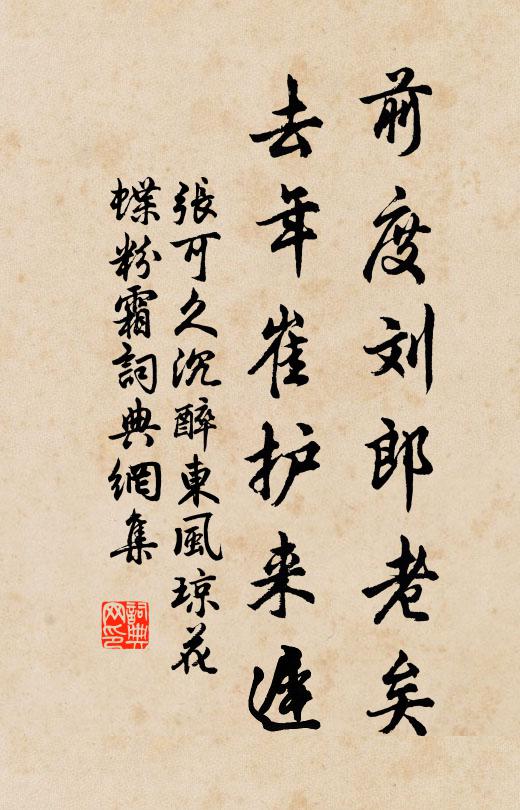 前度刘郎老矣
去年崔护来遲
張可久沉醉東風琼花
蝶粉霜詞典網集
詞典网印